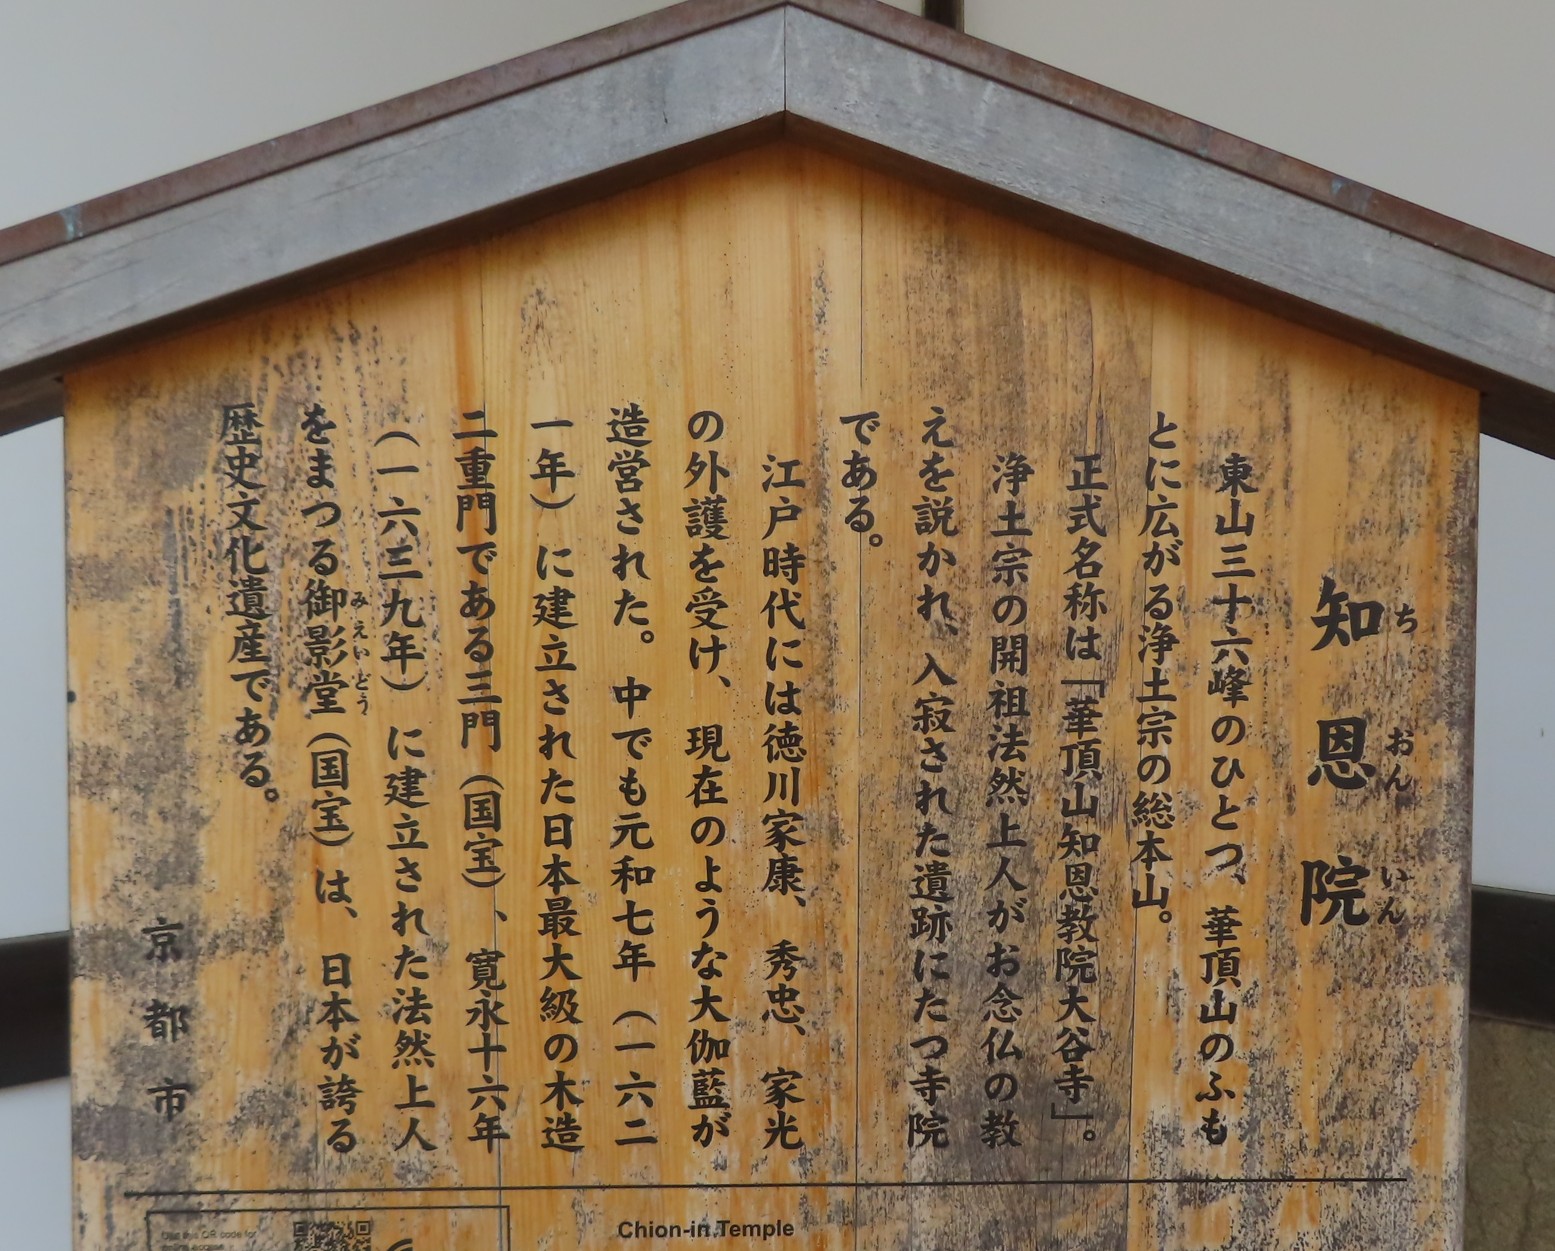 知恩院
ちおんいん
東山三十六峰のひとつ、華頂山のふも
とに広がる浄土宗の総本山。
正式名称は「華頂山知恩教院大谷寺」。
浄土宗の開祖法然上人がお念仏の教
えを説かれ、入寂された遺跡にたつ寺院
である。
江戸時代には徳川家康、秀忠、家光
の外護を受け、現在のような大伽藍が
造営された。中でも元和七年（一六二
一年）に建立された日本最大級の木造
二重門である三門（国宝）、寛永十六年
（一六三九年）に建立された法然上人
をまつる御影堂（国宝）は、日本が誇る
みえいどう
歴史文化遺産である。
京都市
Chion-in Temple